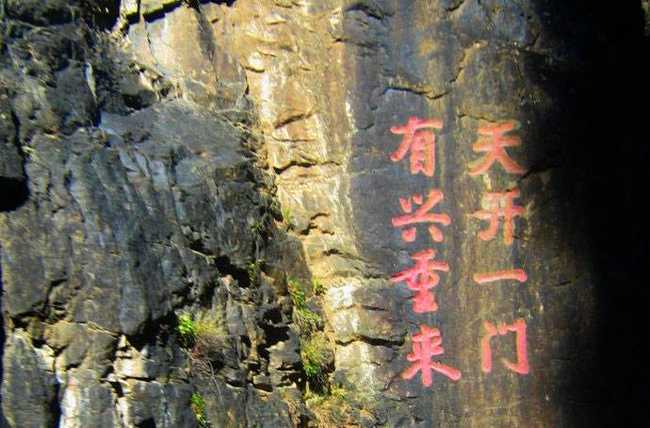 天开一门
有兴重来